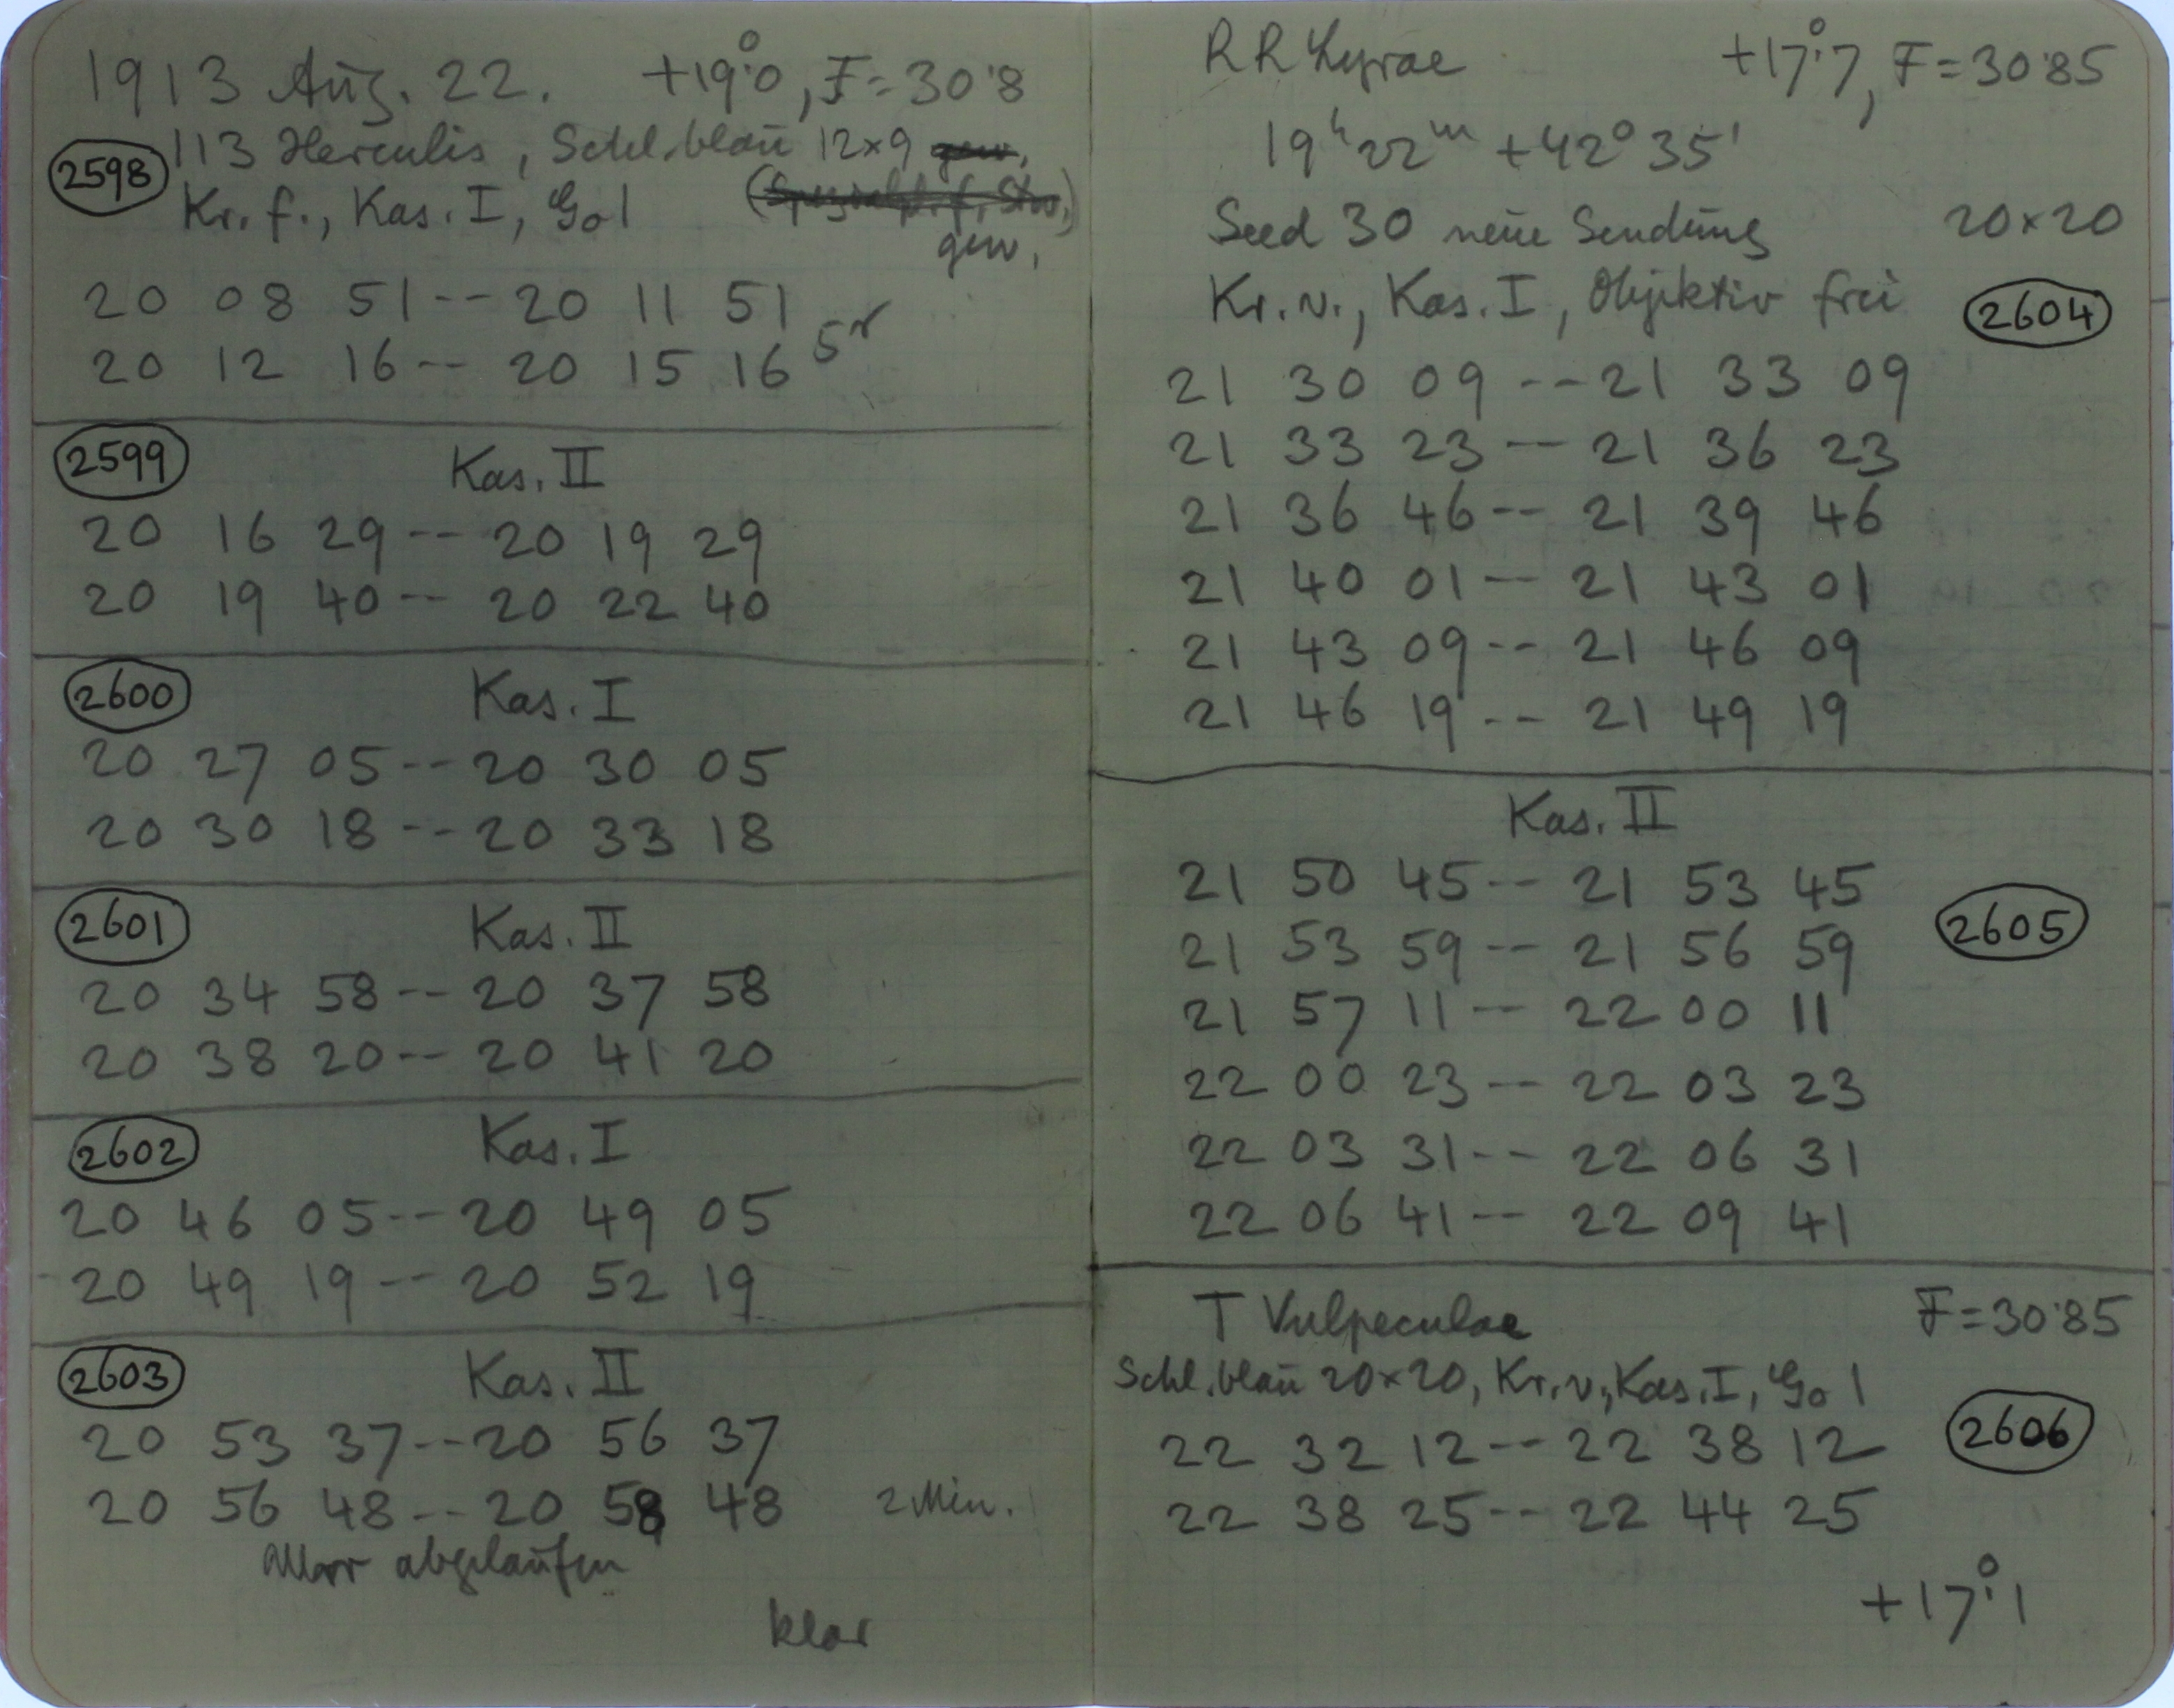 1913 Aug. 22. +19°.0, F=30.8
2598 113 Herculis, Schl. blau 12×9 gew.
Kr. f., Kas. I, Go 1
gew.
20 08 51 -- 20 11 51
20 12 16 -- 20 15 16 5r
2599 Kas. II
20 16 29 -- 20 19 29
20 19 40 -- 20 22 40
2600 Kas. I
20 27 05 -- 20 30 05
20 30 18 -- 20 33 18
2601 Kas. II
20 34 58 -- 20 37 58
20 38 20 -- 20 41 20
2602 Kas. I
20 46 05 -- 20 49 05
20 49 19 -- 20 52 19
2603 Kas. II
20 53 37 -- 20 56 37
20 56 48 -- 20 58 48 2 Min.
abgelaufen
klar
RR Lyrae +17°.7, F=30.85
19h 22m +42° 35'
Seed 30 neue Sendung 20×20
Kr. v., Kas. I, Objektiv frei 2604
21 30 09 -- 21 33 09
21 33 23 -- 21 36 23
21 36 46 -- 21 39 46
21 40 01 -- 21 43 01
21 43 09 -- 21 46 09
21 46 19 -- 21 49 19
Kas. II
21 50 45 -- 21 53 45
21 53 59 -- 21 56 59 2605
21 57 11 -- 22 00 11
22 00 23 -- 22 03 23
22 03 31 -- 22 06 31
22 06 41 -- 22 09 41
T Vulpeculae F=30.85
Schl. blau 20×20, Kr. v., Kas. I, Go 1
22 32 12 -- 22 38 12 2606
22 38 25 -- 22 44 25
+17°.1